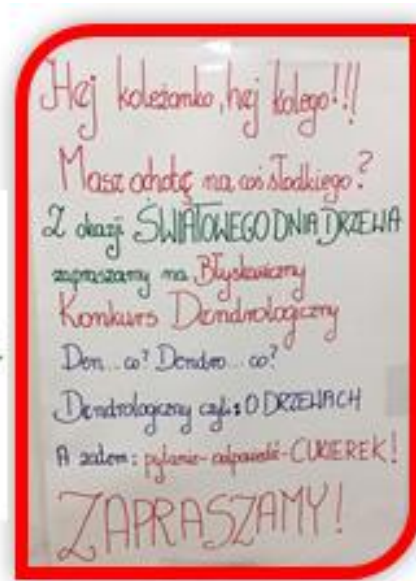 Hej koleżanko, hej kolego!!!
Masz ochotę na coś słodkiego?
Z okazji ŚWIATOWEGO DNIA DRZEWA
zapraszamy na Błyskawiczny
Konkurs Dendrologiczny
Den...co? Dendro...co?
Dendrologiczny czyli: O DRZEWACH
A zatem: pytanie-odpowiedź-CUKIEREK!
ZAPRASZAMY!